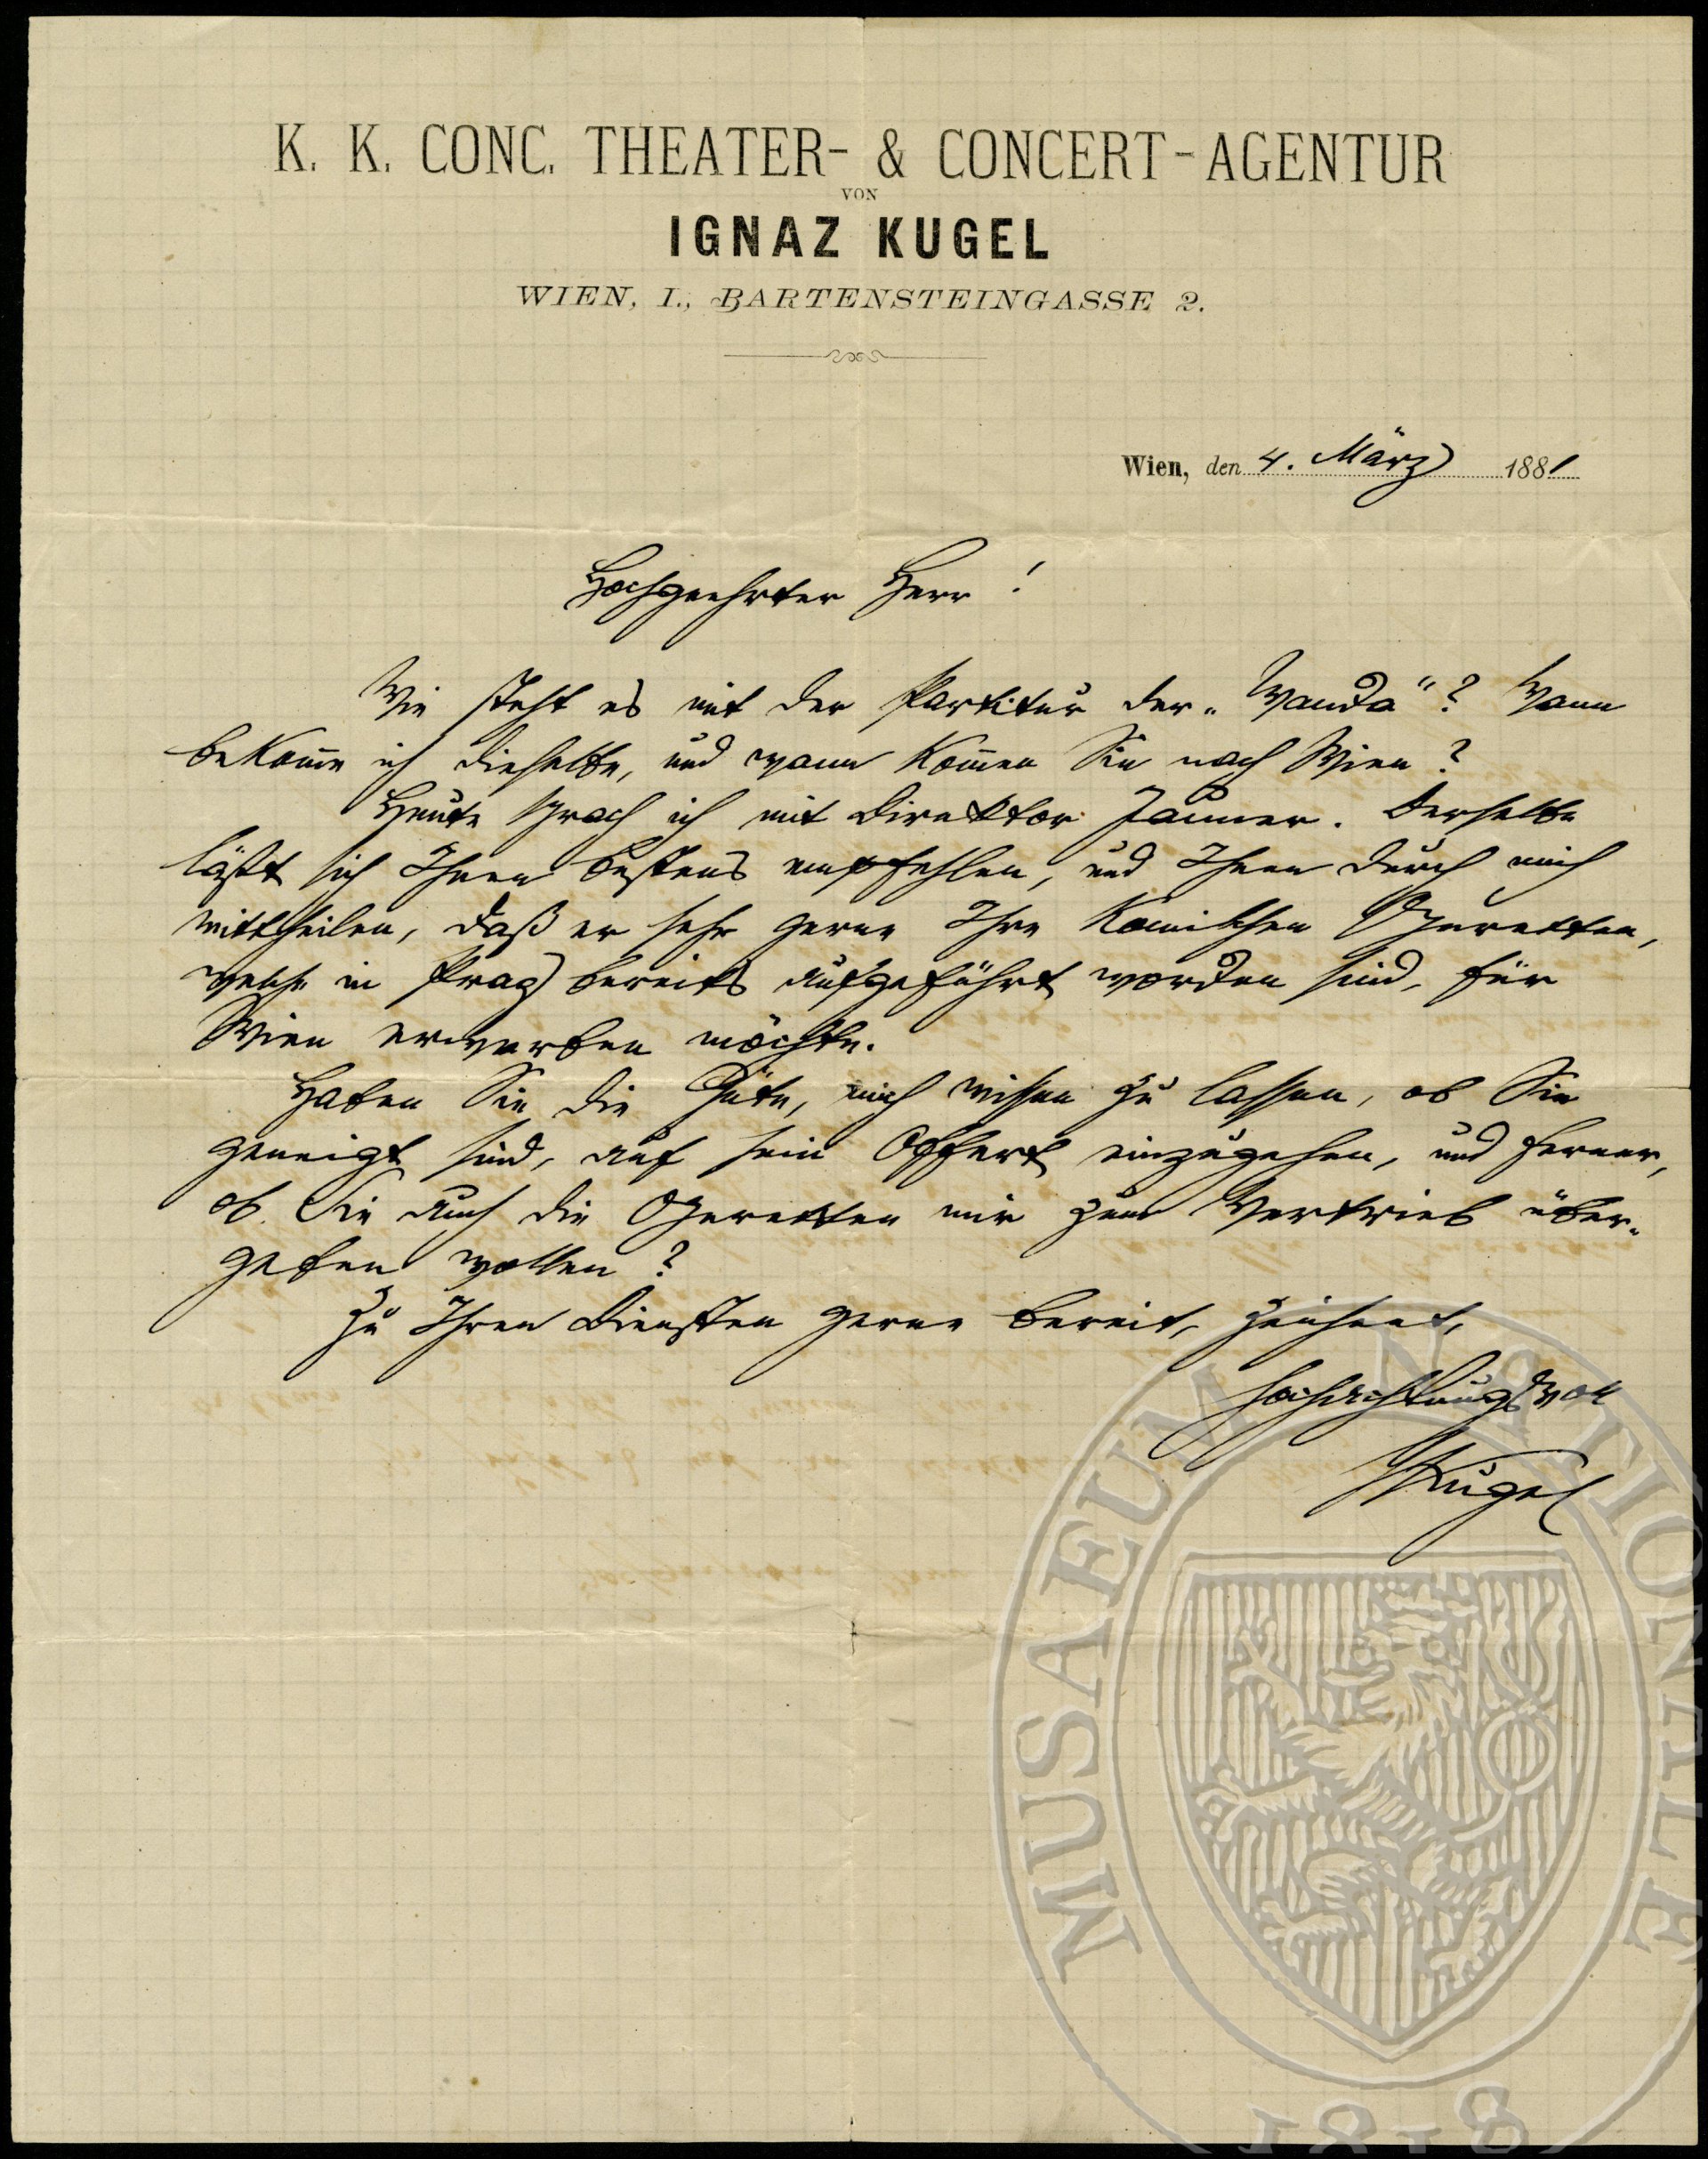 K. K. CONC. THEATER- & CONCERT-AGENTUR
VON
IGNAZ KUGEL
WIEN, I., BARTENSTEINGASSE 2.
Wien, den 4. März 1881
Hochgeehrter Herr!
Wie steht es mit der Partitur der „Wanda“? Wann
bekom̄e ich dieselbe, und wann kom̄en Sie nach Wien?
Heute sprach ich mit Direktor Jauner. Derselbe
läßt sich Ihnen bestens empfehlen, und Ihnen durch mich
mittheilen, daß er sehr gerne Ihre komischen Operetten,
welche in Prag bereits aufgeführt worden sind, für
Wien erwerben möchte.
Haben Sie die Güte, mich wissen zu lassen, ob Sie
geneigt sind, auf sein Offert einzugehen, und ferner,
ob Sie auch die Operetten mir zum Vertrieb über-
geben wollen?
Zu Ihren Diensten gerne bereit, zeichnet,
hochachtungsvoll
IKugel
MUSAEUM NATIONALE
1818